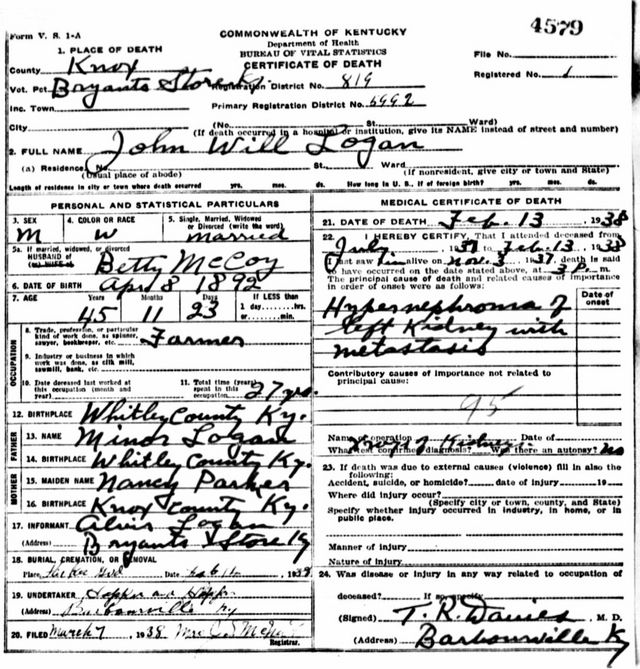 4579
Form V. S. 1-A
COMMONWEALTH OF KENTUCKY
Department of Health
BUREAU OF VITAL STATISTICS
CERTIFICATE OF DEATH
1. PLACE OF DEATH
County Knox
File No.
Registered No. 1
Vot. Pct Bryants Store Ky. Registration District No. 819
Inc. Town Primary Registration District No. 6992
City (No. St. Ward)
(If death occurred in a hospital or institution, give its NAME instead of street and number)
2. FULL NAME John Will Logan
(a) Residence. No. St. Ward
(Usual place of abode) (If nonresident, give city or town and State)
Length of residence in city or town where death occurred yrs. mos. ds. How long in U. S., if of foreign birth? yrs. mos. ds.
PERSONAL AND STATISTICAL PARTICULARS
3. SEX M
4. COLOR OR RACE W
5. Single, Married, Widowed or Divorced (write the word) married
5a. If married, widowed, or divorced
HUSBAND of
(or) WIFE of Betty McCoy
6. DATE OF BIRTH Apr 8 1892
7. AGE Years 45 Months 11 Days 23 If LESS than 1 day hrs. or min.
OCCUPATION
8. Trade, profession, or particular kind of work done, as spinner, sawyer, bookkeeper, etc. Farmer
9. Industry or business in which work was done, as silk mill, sawmill, bank, etc.
10. Date deceased last worked at this occupation (month and year)
11. Total time (years) spent in this occupation. 27 yrs.
12. BIRTHPLACE Whitley County Ky.
FATHER
13. NAME Minor Logan
14. BIRTHPLACE Whitley County Ky.
MOTHER
15. MAIDEN NAME Nancy Parker
16. BIRTHPLACE Knox County Ky.
17. INFORMANT Alvis Logan
(Address) Bryants Store Ky
18. BURIAL, CREMATION, OR REMOVAL
Place Date 1938
19. UNDERTAKER
(Address) Barbourville Ky
20. FILED March 7 1938 Mrs
Registrar.
MEDICAL CERTIFICATE OF DEATH
21. DATE OF DEATH Feb. 13 1938
22. I HEREBY CERTIFY, That I attended deceased from
July 1937 to Feb. 13 1938
I last saw him alive on Nov. 3 1937. death is said
to have occurred on the date stated above, at 3 P. m.
The principal cause of death and related causes of importance in order of onset were as follows:
Date of onset
Hypernephroma of
left Kidney with
metastasis
Contributory causes of importance not related to principal cause:
95
Name of operation Date of
What test confirmed diagnosis? of Kidney. Was there an autopsy? no
23. If death was due to external causes (violence) fill in also the following:
Accident, suicide, or homicide? date of injury 19
Where did injury occur?
(Specify city or town, county, and State)
Specify whether injury occurred in industry, in home, or in public place.
Manner of injury
Nature of injury
24. Was disease or injury in any way related to occupation of
deceased? If so, specify
(Signed) T. R. Davies M. D.
(Address) Barbourville Ky